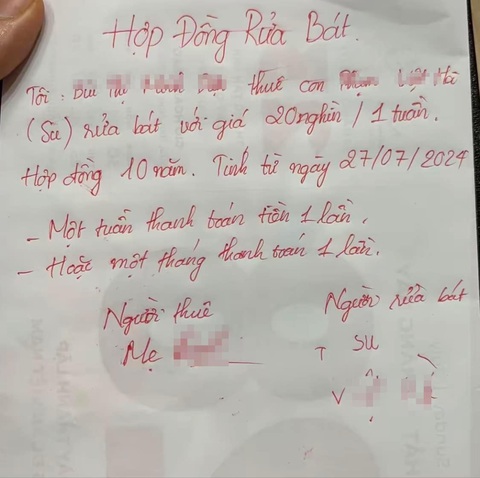 Hợp Đồng Rửa Bát.
Tôi : Bùi Thị thuê con Hà
(Su) rửa bát với giá 20nghìn / 1 tuần.
Hợp đồng 10 năm. Tính từ ngày 27/07/2024
- Một tuần thanh toán tiền 1 lần.
- Hoặc một tháng thanh toán 1 lần.
Người thuê
Mẹ
Người rửa bát
SU